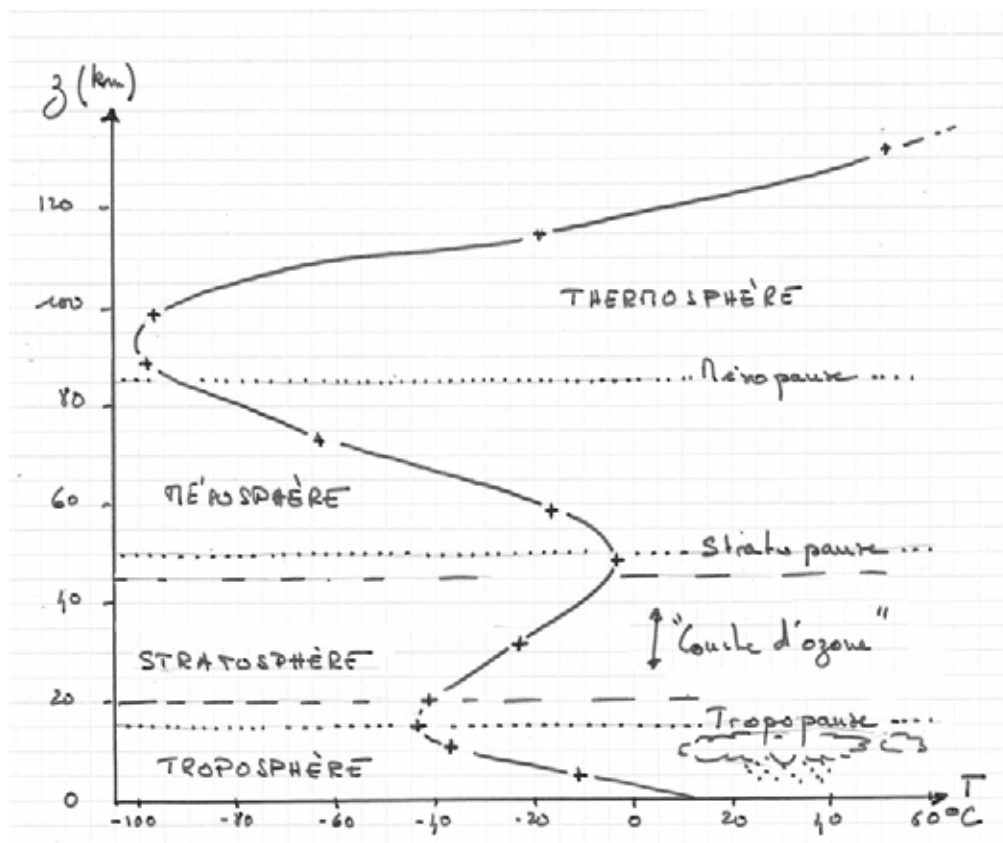 z (km)
120
100
THERMOSPHÈRE
Mésopause
80
MÉSOSPHÈRE
60
Stratopause
40
"Couche d'ozone"
STRATOSPHÈRE
20
Tropopause
TROPOSPHÈRE
0
T
-100 -70 -60 -40 -20 0 20 40 60 °C